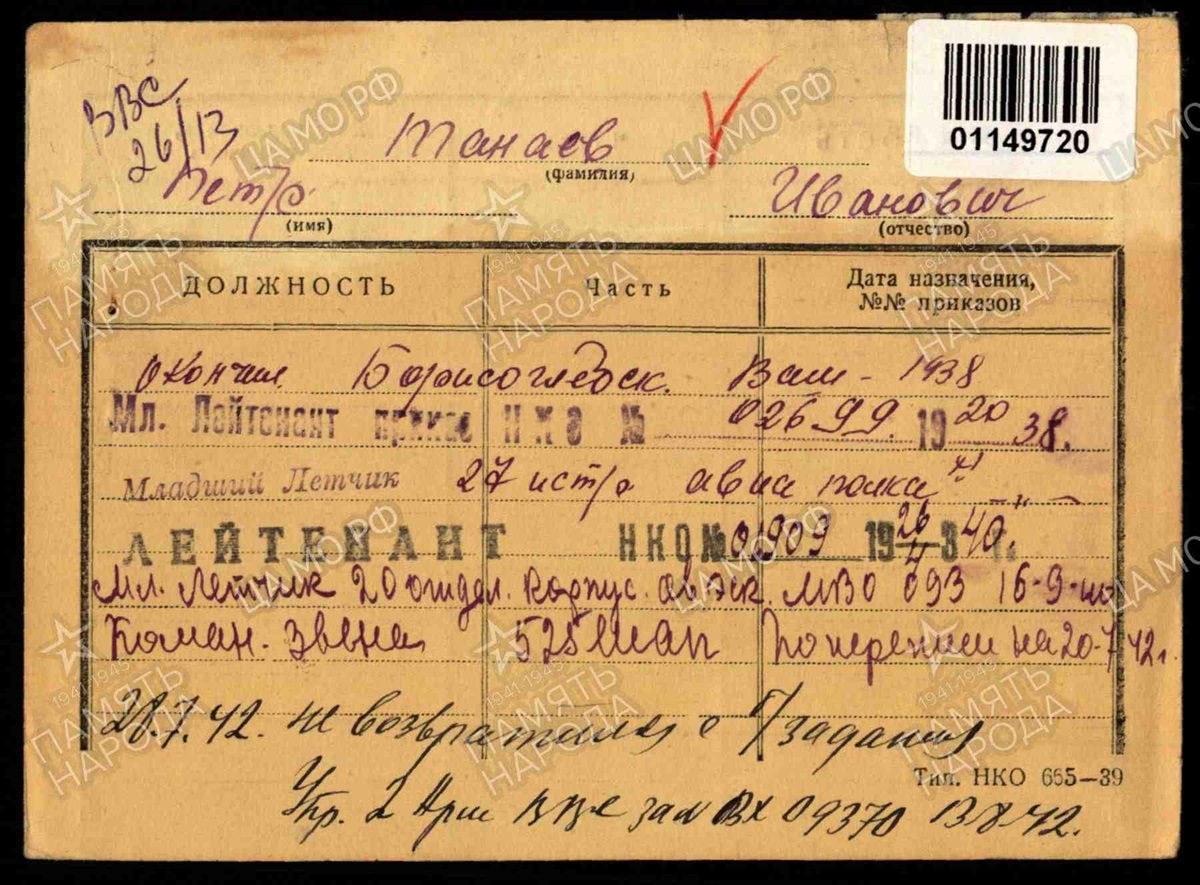 01149720
ВВС
26/13
Танаев
(фамилия)
Петр
(имя)
Иванович
(отчество)
ДОЛЖНОСТЬ
Часть
Дата назначения,
№№ приказов
окончил Борисоглебск. Ваш - 1938
Мл. Лейтенант приказ НКО № 02699 1920 38.
Младший Летчик 27 истр авиа полка — „ —
ЛЕЙТЕНАНТ НКО № 01909 19 26/4 340 г.
Мл. Летчик 20 отдел. корпус. ав. эск. МВО 093 16-9-40
Коман. Звена 528 иап по переписи на 20-7-42 г.
28.7.42. не возвратился с б/задания
Тип. НКО 665—39
Упр. 2 Арм ВВС вх 09370 13 8-42.
ЦАМО.РФ
ПАМЯТЬ НАРОДА
1941-1945